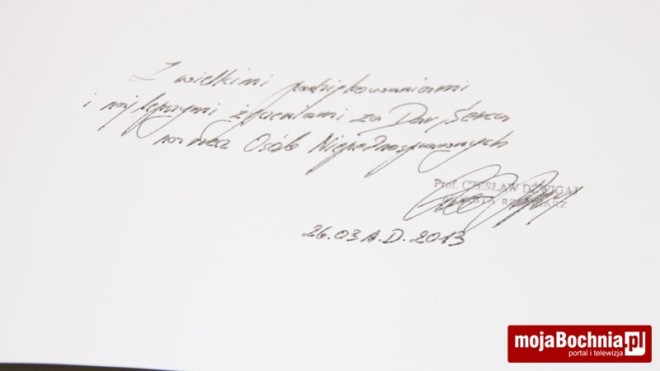 Z wielkimi podziękowaniami
i najlepszymi życzeniami za Dar Serca
na rzecz Osób Niepełnosprawnych
Prof. CZESŁAW DŹWIGAJ
ARTYSTA RZEŹBIARZ
26.03 A.D. 2013
mojaBochnia.pl
portal i telewizja